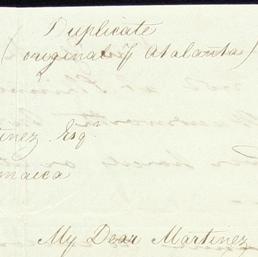 Duplicate
(original p Atalanta)
tinez Esqr
maica
My Dear Martinez